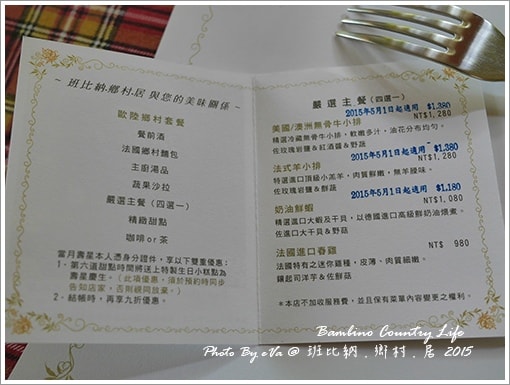 ~ 班比納.鄉村.居 與您的美味關係 ~
歐陸鄉村套餐
餐前酒
法國鄉村麵包
主廚湯品
蔬果沙拉
嚴選主餐（四選一）
精緻甜點
咖啡or茶
當月壽星本人憑身分證件，享以下雙重優惠：
1、第六道甜點時間將送上特製生日小糕點為
壽星慶生。（此項優惠，須於預約時同步
告知店家，否則視同放棄。）
2、結帳時，再享九折優惠。
嚴選主餐（四選一）
2015年5月1日起適用 $1,380
美國/澳洲無骨牛小排 NT$1,280
精選冷藏無骨牛小排，軟嫩多汁，油花分布均勻。
佐玫瑰岩鹽&紅酒醬&野蔬
2015年5月1日起適用 $1,380
法式羊小排 NT$1,280
特選進口頂級小羔羊，肉質鮮嫩，無羊臊味。
佐玫瑰岩鹽&鮮蔬
2015年5月1日起適用 $1,180
奶油鮮蝦 NT$1,080
精選進口大蝦及干貝，以德國進口高級鮮奶油煨煮。
佐進口大干貝&野菇
法國進口春雞 NT$ 980
法國特有之迷你雞種，皮薄，肉質細嫩。
鑲起司洋芋&佐鮮菇
*本店不加收服務費，並且保有菜單內容變更之權利。
Bambino Country Life
Photo By eVa @ 班比納.鄉村.居 2015